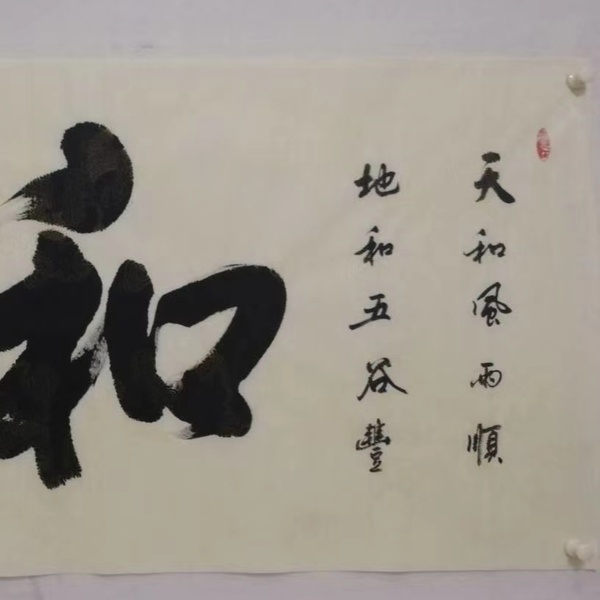 天和風雨順
地和五谷豐
和